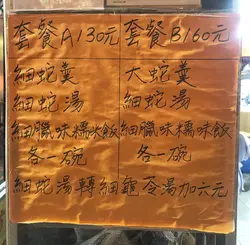 套餐A130元 套餐B160元
細蛇羹 大蛇羹
細蛇湯 細蛇湯
細臘味糯米飯 細臘味糯味飯
各一碗 各一碗
細蛇湯轉細龜苓湯加六元